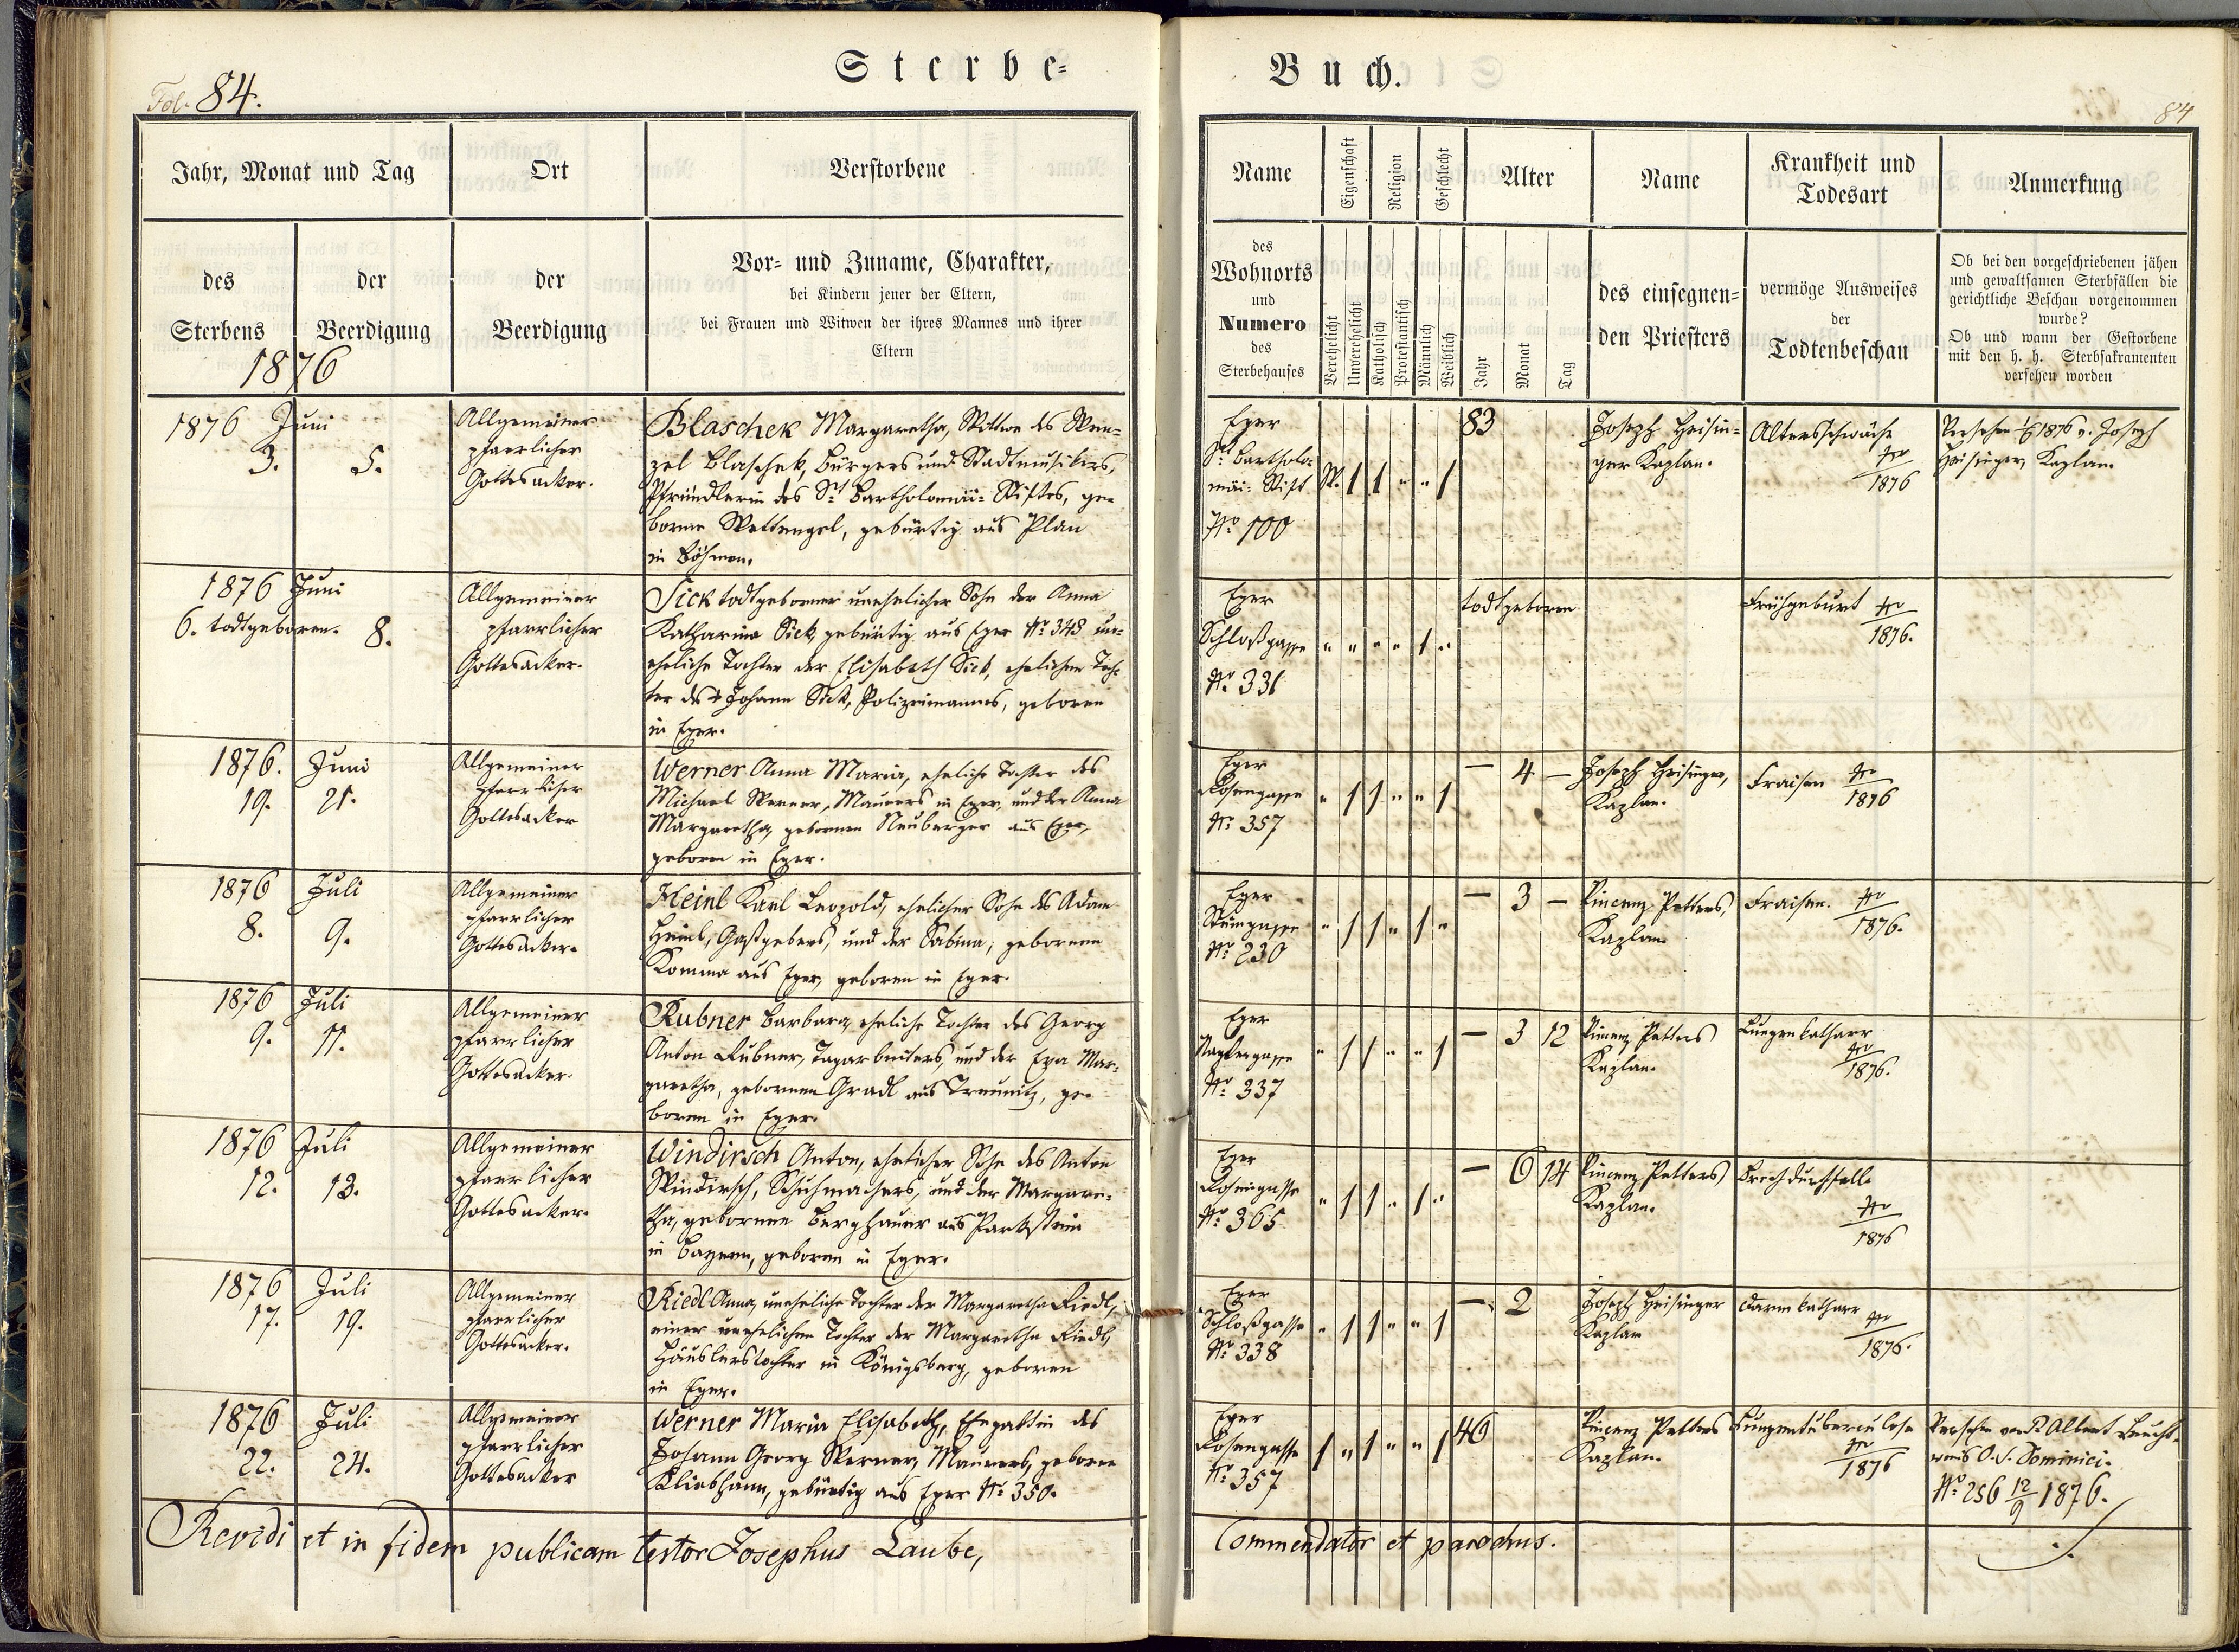 Sterbe=
Fol. 84.
Jahr, Monat und Tag
Ort
Verstorbene
des
Sterbens
der
Beerdigung
der
Beerdigung
Vor- und Zuname, Charakter,
bei Kindern jener der Eltern,
bei Frauen und Witwen der ihres Mannes und ihrer
Eltern
1876
1876 Juni
3. 5.
Allgemeiner
pfarrlicher
Gottesacker.
Blaschek Margaretha, Wittwe des Wen=
zel Blaschek, Bürgers und Stadtmusikers,
Pfründlerin des St. Bartholomäi-Stiftes, ge=
borne Wettengel, gebürtig aus Plan
in Böhmen.
1876 Juni
6. todtgeboren. 8.
Allgemeiner
pfarrlicher
Gottesacker.
Sick todtgeborner unehelicher Sohn der Anna
Katharina Sick, gebürtig aus Eger No. 348 un=
eheliche Tochter der Elisabeth Sick, ehelichen Toch=
ter des † Johann Sick, Polizeimannes, geboren
in Eger.
1876. Juni
19. 21.
Allgemeiner
pfarrlicher
Gottesacker
Werner Anna Maria, eheliche Tochter des
Michael Werner, Maurers in Eger, und der Anna
Margaretha, gebornen Neuberger aus Eger,
geboren in Eger.
1876 Juli
8. 9.
Allgemeiner
pfarrlicher
Gottesacker.
Heinl Karl Leopold, ehelicher Sohn des Adam
Heinl, Gastgebers, und der Sabina, gebornen
Komma aus Eger, geboren in Eger.
1876 Juli
9. 11.
Allgemeiner
pfarrlicher
Gottesacker.
Rubner Barbara, eheliche Tochter des Georg
Anton Rubner, Tagarbeiters, und der Eva Mar=
garetha, gebornen Gradl aus Treunitz, ge=
boren in Eger.
1876 Juli
12. 13.
Allgemeiner
pfarrlicher
Gottesacker.
Windirsch Anton, ehelicher Sohn des Anton
Windirsch, Schuhmachers, und der Margare=
tha, gebornen Berghauer aus Parkstein
in Bayern, geboren in Eger.
1876 Juli
17. 19.
Allgemeiner
pfarrlicher
Gottesacker.
Riedl Anna, uneheliche Tochter der Margaretha Riedl,
einer unehelichen Tochter der Margaretha Riedl,
Häuslerstochter in Königsberg, geboren
in Eger.
1876 Juli
22. 24.
Allgemeiner
pfarrlicher
Gottesacker
Werner Maria Elisabeth, Ehegattin des
Johann Georg Werner, Maurers, geborne
Kliebhann, gebürtig aus Eger No. 350.
Revidi et in fidem publicam testor Josephus Laube,
Buch.
84
Name
Eigenschaft
Religion
Geschlecht
Alter
Name
Krankheit und
Todesart
Anmerkung
des
Wohnorts
und
Numero
des
Sterbehauses
Verehelicht
Unverehelicht
Katholisch
Protestantisch
Männlich
Weiblich
Jahr
Monat
Tag
des einsegnen=
den Priesters
vermöge Ausweises
der
Todtenbeschau
Ob bei den vorgeschriebenen jähen
und gewaltsamen Sterbfällen die
gerichtliche Beschau vorgenommen
wurde?
Ob und wann der Gestorbene
mit den h. h. Sterbsakramenten
versehen worden
Eger
St. Bartholo=
mäi-Stift
No. 100
W. 1 1 " " 1
83
Joseph Heisin=
ger Kaplan.
Altersschwäche
1876
Versehen 1876 v. Joseph
Heisinger, Kaplan.
Eger
Schloßgasse
No. 331
" " " " 1 "
todtgeboren
Frühgeburt
1876.
Eger
Rosengasse
No. 357
" 1 1 " " 1
— 4 —
Joseph Heisinger,
Kaplan.
Fraisen
1876
Eger
Steingasse
No. 230
" 1 1 " 1 "
— 3 —
Vincenz Petters,
Kaplan.
Fraisen.
1876.
Eger
No. 337
" 1 1 " " 1
— 3 12
Vincenz Petters
Kaplan.
Lungenkatharr
1876.
Eger
Rosengasse
No. 365
" 1 1 " 1 "
— 6 14
Vincenz Petters
Kaplan.
Brechdurchfall
1876
Eger
Schloßgasse
No. 338
" 1 1 " " 1
— 2
Joseph Heisinger
Kaplan
Darmkatharr
1876.
Eger
Rosengasse
No. 357
1 " 1 " " 1
46
Vincenz Petters
Kaplan.
Lungentuberculose
1876
Versehen von P. Albert Leucht=
weis O. S. Dominici.
No. 256 12/9 1876.
Commendator et parochus.